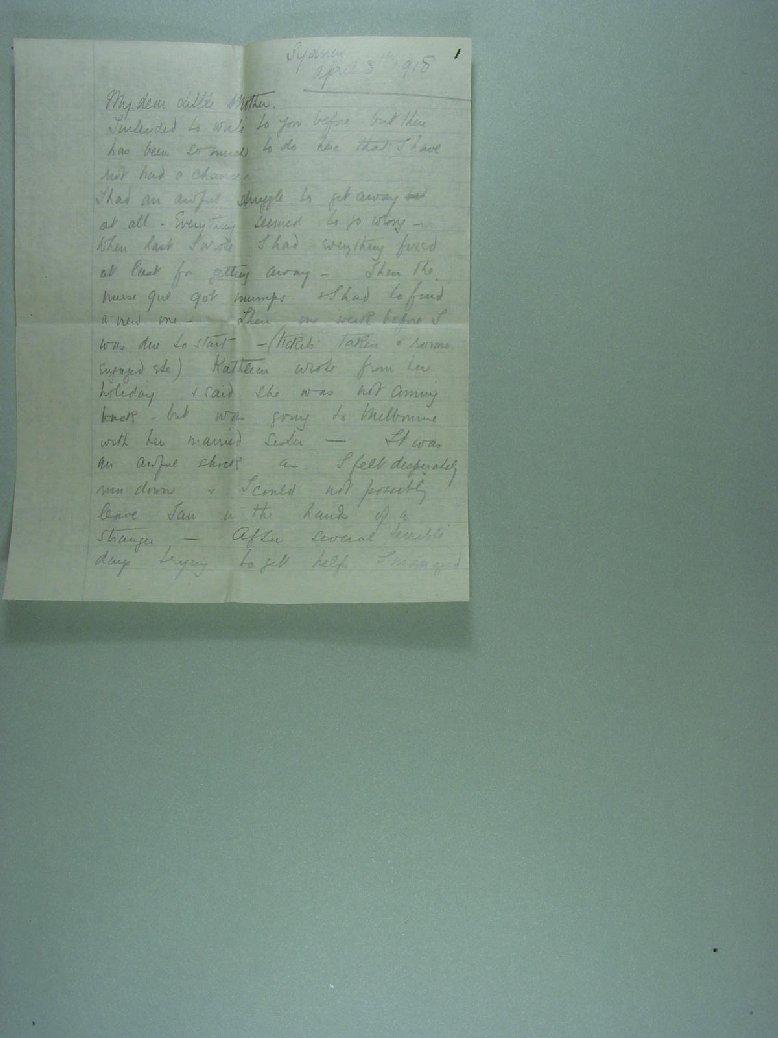 1
Sydney
April 3rd 1918
My dear Little Mother.
I intended to write to you before but there
has been so much to do here that I have
not had a chance.
I had an awful struggle to get away
at all - Everything seemed to go wrong -
When last I wrote I had everything fixed
at last for getting away - Then the
nurse girl got mumps & I had to find
a new one - Then one week before I
was due to start - (tickets taken & rooms
engaged etc) Kathleen wrote from her
holiday & said she was not coming
back - but was going to Melbourne
with her married sister - It was
an awful shock as I felt desperately
run down & I could not possibly
leave Ian in the hands of a
stranger - After several terrible
days trying to get help I managed